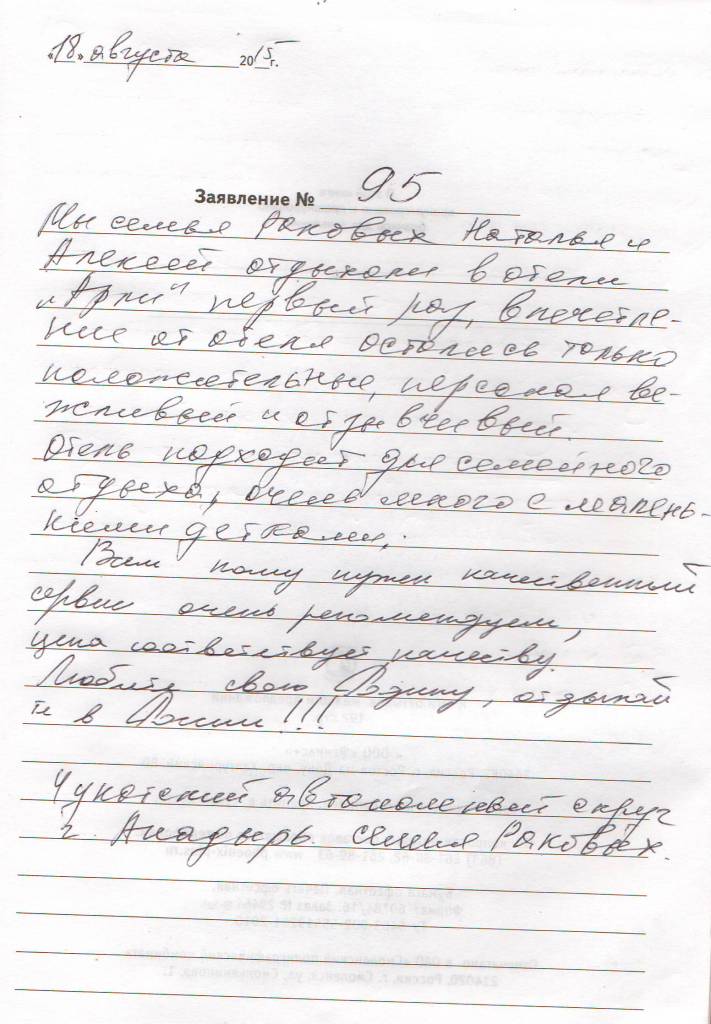 «18» августа 2015 г.
Заявление № 95
Мы семья Раковых Наталья и
Алексей отдыхали в отели
"Арли" первый раз, впечатле-
ние от отеля остались только
положительные, персонал ве-
жливый и отзывчивый.
Отель подходит для семейного
отдыха, очень много с малень-
кими детками.
Вам кому нужен качественный
сервис очень рекомендуем,
цена соответствует качеству.
Любите свою Родину, отдыхай
те в России!!!
Чукотский автономный округ
г. Анадырь. семья Раковых.